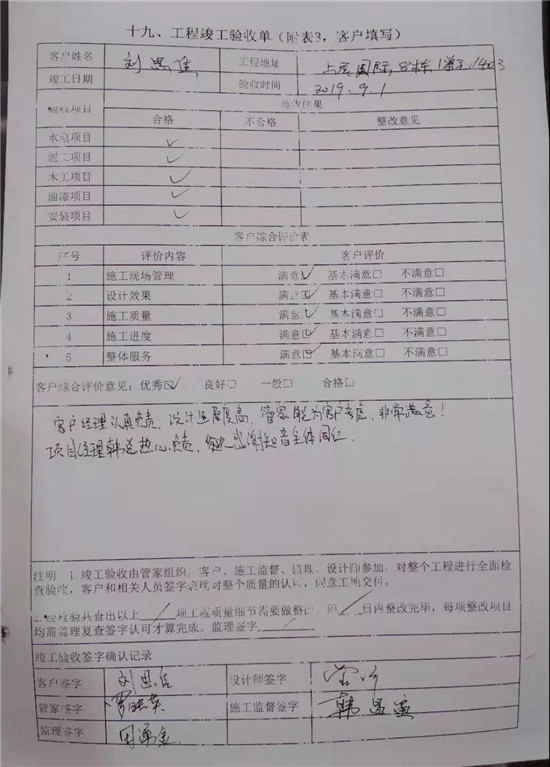 十九、工程竣工验收单（附表3，客户填写）
客户姓名 刘思佳 工程地址 国际 1单元1403
竣工日期 验收时间 2019.9.1
验收项目 验收结果
合格 不合格 整改意见
水电项目 ✓
泥工项目 ✓
木工项目 ✓
油漆项目 ✓
安装项目 ✓
客户综合评价表
序号 评价内容 客户评价
1 施工现场管理 满意☑ 基本满意□ 不满意□
2 设计效果 满意☑ 基本满意□ 不满意□
3 施工质量 满意☑ 基本满意□ 不满意□
4 施工进度 满意☑ 基本满意□ 不满意□
5 整体服务 满意☑ 基本满意□ 不满意□
客户综合评价意见：优秀☑ 良好□ 一般□ 合格□
客户经理认真负责，设计还原度高，管家能为客户考虑，非常满意！
项目经理韩总热心负责，感谢知音全体同仁.
注明 1.竣工验收由管家组织，客户、施工监督、监理、设计师参加，对整个工程进行全面检
查验收，客户和相关人员签字表明对整个质量的认可，同意工地交付。
2.经检验共查出以上 / 项工程质量细节需要做整改，限 / 日内整改完毕，每项整改项目
均需监理复查签字认可才算完成。监理签字 /
竣工验收签字确认记录
客户签字 刘思佳 设计师签字
管家签字 施工监督签字 韩
监理签字